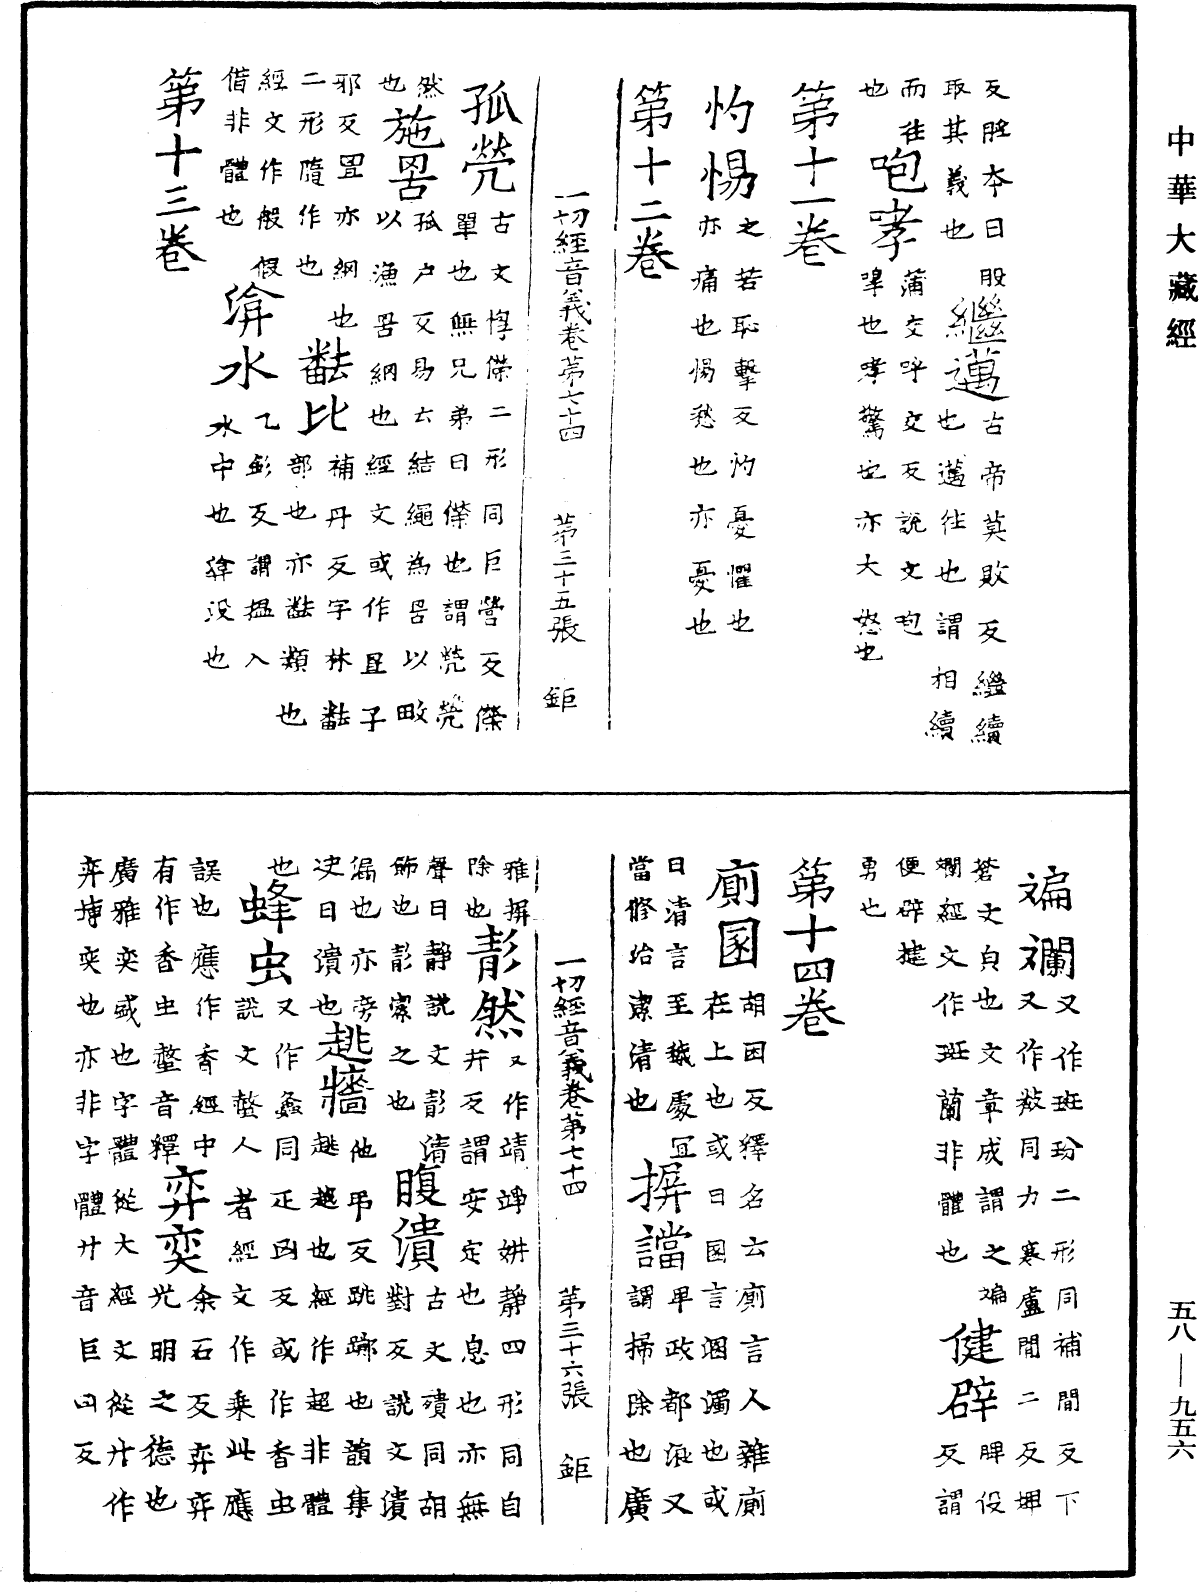 中華大藏經
反脞本曰股
取其義也
繼邁古帝莫敗反繼續
也邁往也謂相續
而往
也
咆哮蒲交呼交反說文咆
嘷也哮驚也亦大怒也
第十一卷
灼惕之若恥擊反灼憂懼也
亦痛也惕愁也亦憂也
第十二卷
一切經音義卷第七十四 第三十五張 鉅
孤煢古文惸傑二形同巨營反傑
單也無兄弟曰傑也謂煢煢
然
也
施罟孤户反易云結繩為罟以畋
以漁罟網也經文或作罝子
邪反罝亦網也
二形隨作也
𪐀比補丹反字林𪐀
部也亦𪐀類也
經文作般假
借非體也
渰水乙彭反謂揾入
水中也渰没也
第十三卷
斒斕又作斑玢二形同補間反下
又作㪍同力寒盧間二反埤
蒼文皃也文章成謂之斒
斕經文作斑蘭非體也
健辟脾役
反謂
便辟揵
勇也
第十四卷
廁圂胡困反釋名云廁言人雜廁
在上也或曰圂言溷濁也或
曰清言至穢處宜
當修治潔清也
摒譡卑政都浪反
謂掃除也廣
雅摒
除也
彭然又作靖竫妌靜四形同自
井反謂安定也息也亦無
聲曰靜說文彭清
飾也彭寀之也
腹潰古文殨同胡
對反說文潰
漏也亦旁
决曰潰也
趒牆他弔反跳躑也韻集
趒越也經作超非體
也
蜂虫又作蠭同疋凶反或作香虫
說文螫人者經文作乘此應
誤也應作香經中
有作香虫螫音釋
弈奕余石反弈弈
光明之德也
廣雅奕盛也字體從大經文從廾作
弈博奕也亦非字體廾音巨凶反
一切經音義卷第七十四 第三十六張 鉅
五八—九五六